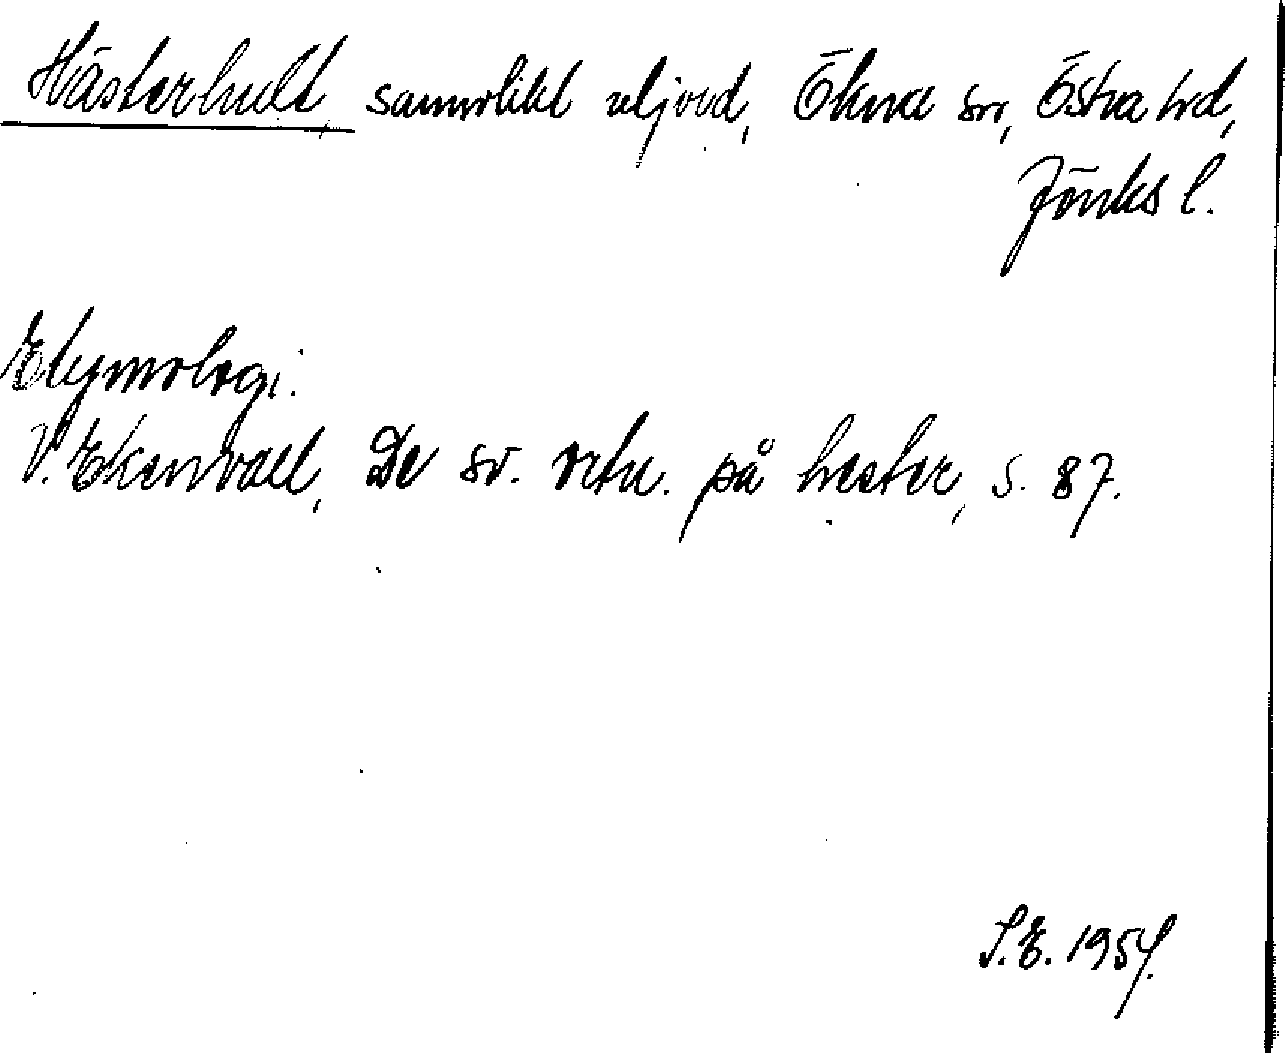 Hästerhult, sannolikt utjord, Ökna sn, Östra hd,
Jönks l.
Etymologi:
V. Ekenvall, De sv. ortn. på hester, s. 87.
S.E. 1954.